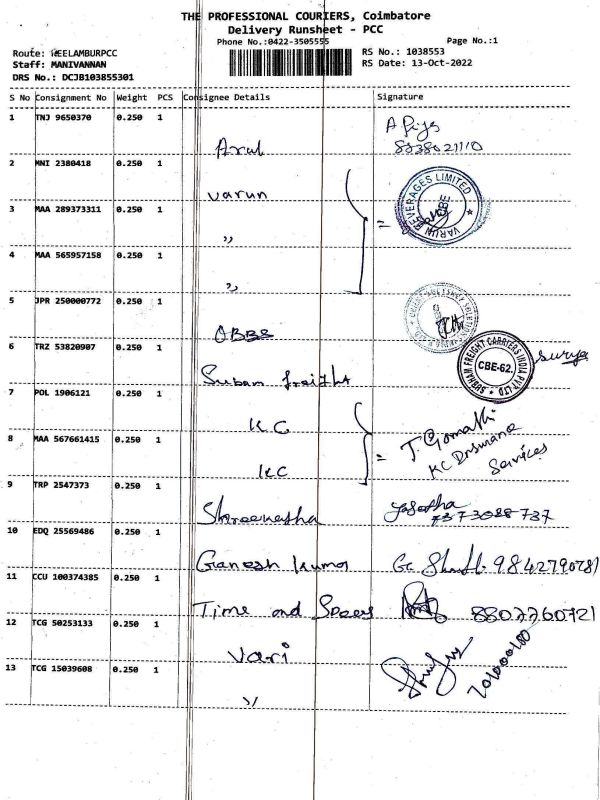 THE PROFESSIONAL COURIERS, Coimbatore
Delivery Runsheet - PCC
Phone No.:0422-3505555
Page No.:1
Route: NEELAMBURPCC
RS No.: 1038553
Staff: MANIVANNAN
RS Date: 13-Oct-2022
DRS No.: DCJB103855301
S No Consignment No Weight PCS Consignee Details Signature
1 TNJ 9650370 0.250 1
Arul
2 MNI 2380418 0.250 1
varun
VARUN BEVERAGES LIMITED
3 MAA 289373311 0.250 1
,, =
4 MAA 565957158 0.250 1
,,
5 JPR 250000772 0.250 1
OBBS
6 TRZ 53820907 0.250 1
Subam freight
SUBHAM FREIGHT CARRIERS INDIA PVT LTD
CBE-62.
surya
7 POL 1906121 0.250 1
KC
T. Gomathi
8 MAA 567661415 0.250 1
KC =
KC Insurance
Services
9 TRP 2547373 0.250 1
7373088737
10 EDQ 25569486 0.250 1
Ganesh Kumar 9842790781
11 CCU 100374385 0.250 1
Time and Speeds 8807760721
12 TCG 50253133 0.250 1
Vari
13 TCG 15039608 0.250 1
,,